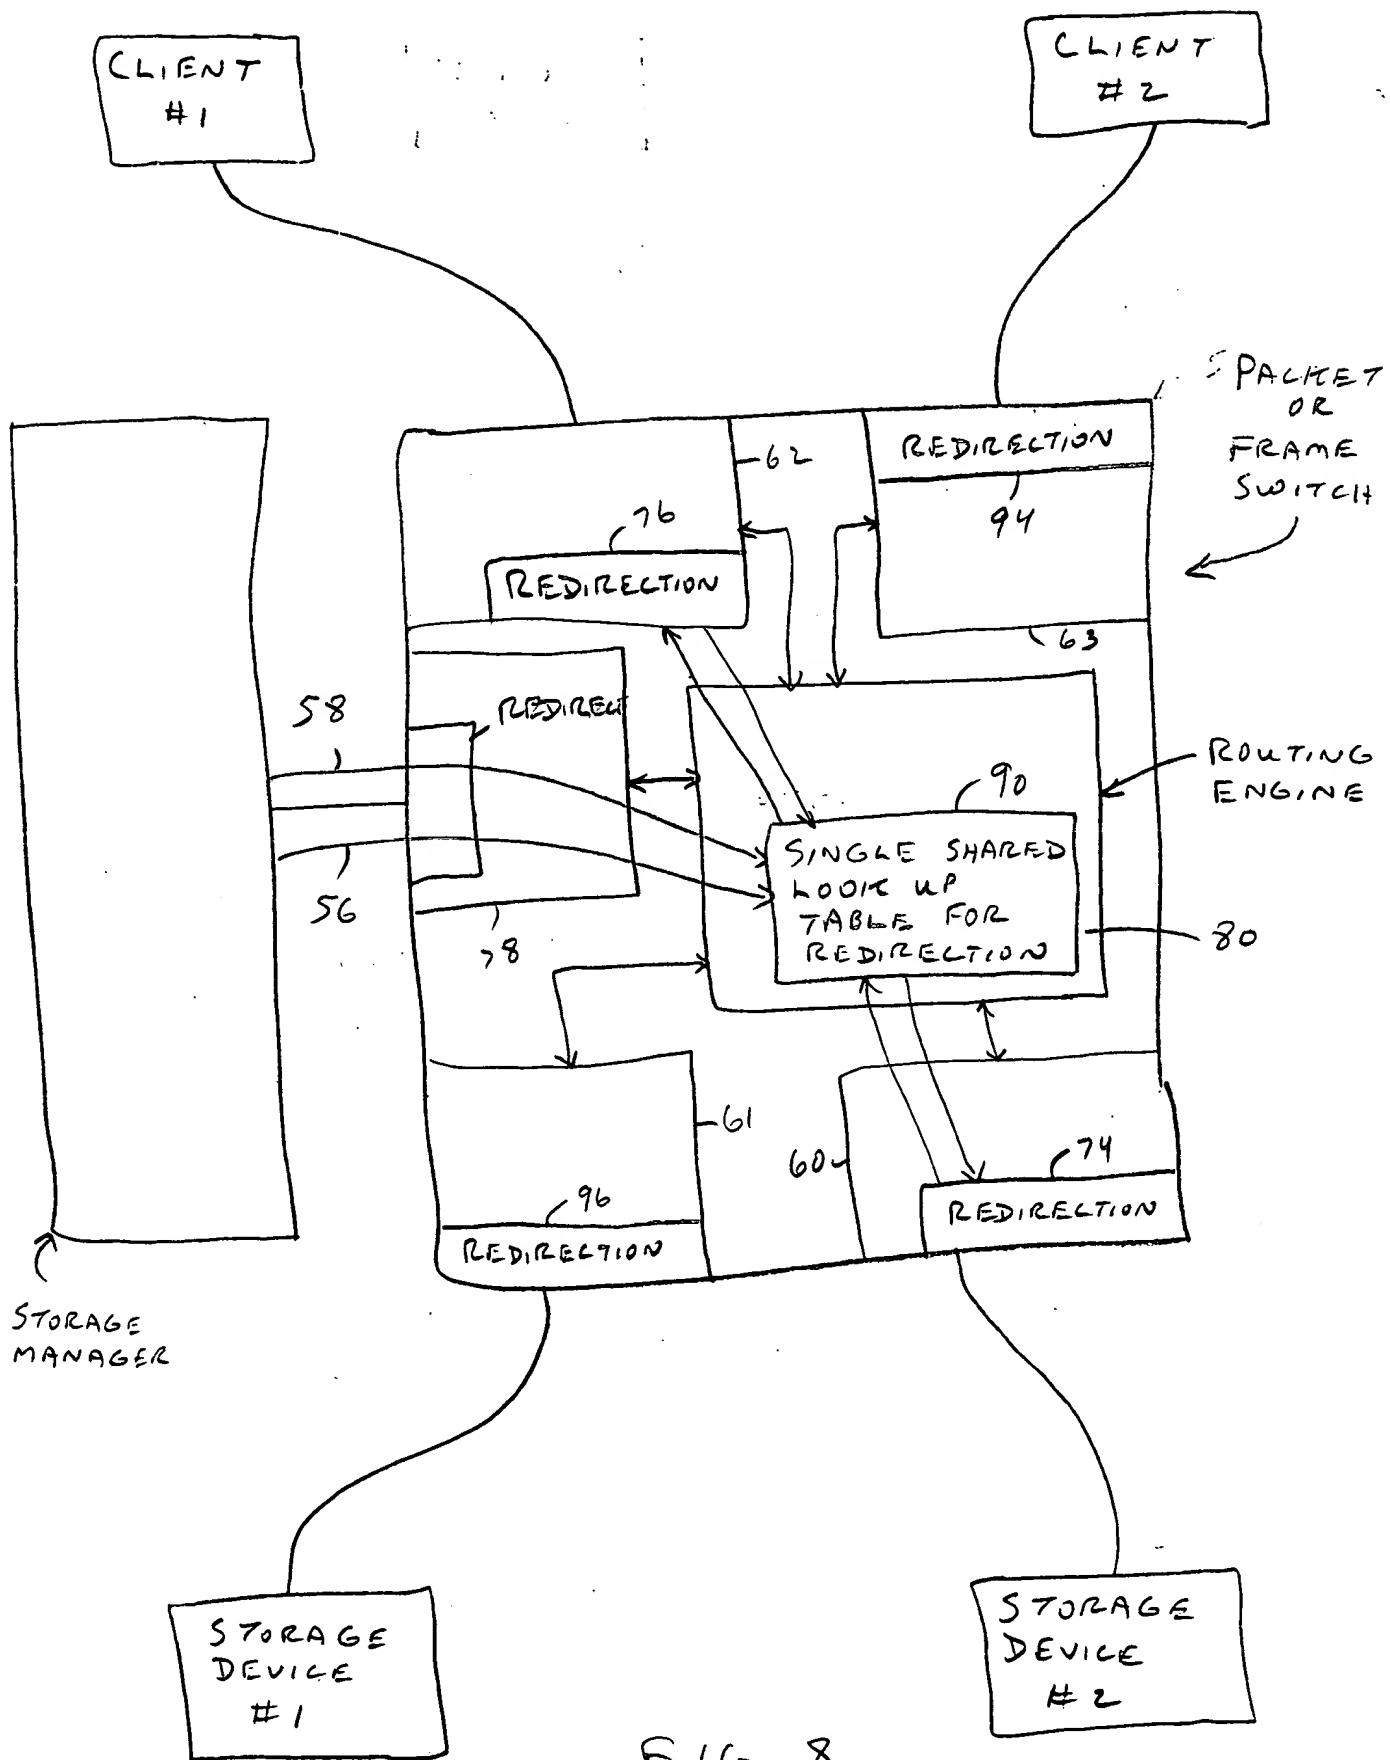 CLIENT
#1
CLIENT
#2
PACKET
OR
FRAME
SWITCH
REDIRECTION
62
94
76
REDIRECTION
63
58
REDIRECT
ROUTING
ENGINE
90
SINGLE SHARED
LOOK UP
TABLE FOR
REDIRECTION
56
78
80
61
60
74
96
REDIRECTION
REDIRECTION
STORAGE
MANAGER
STORAGE
DEVICE
#1
STORAGE
DEVICE
#2
FIG. 8